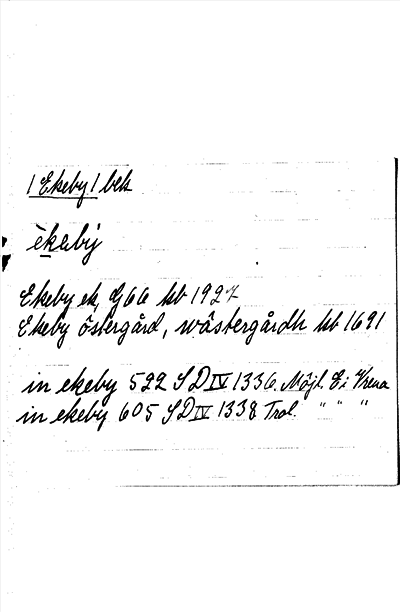 / Ekeby / bek
èkeby
Ekeby ek, G66 kb 1927
Ekeby östergård, wästergårdh kb 1691
in ekeby 522 SD IV 1336. Möjl. E i Vrena
in ekeby 605 SD IV 1338 Trol. " " "